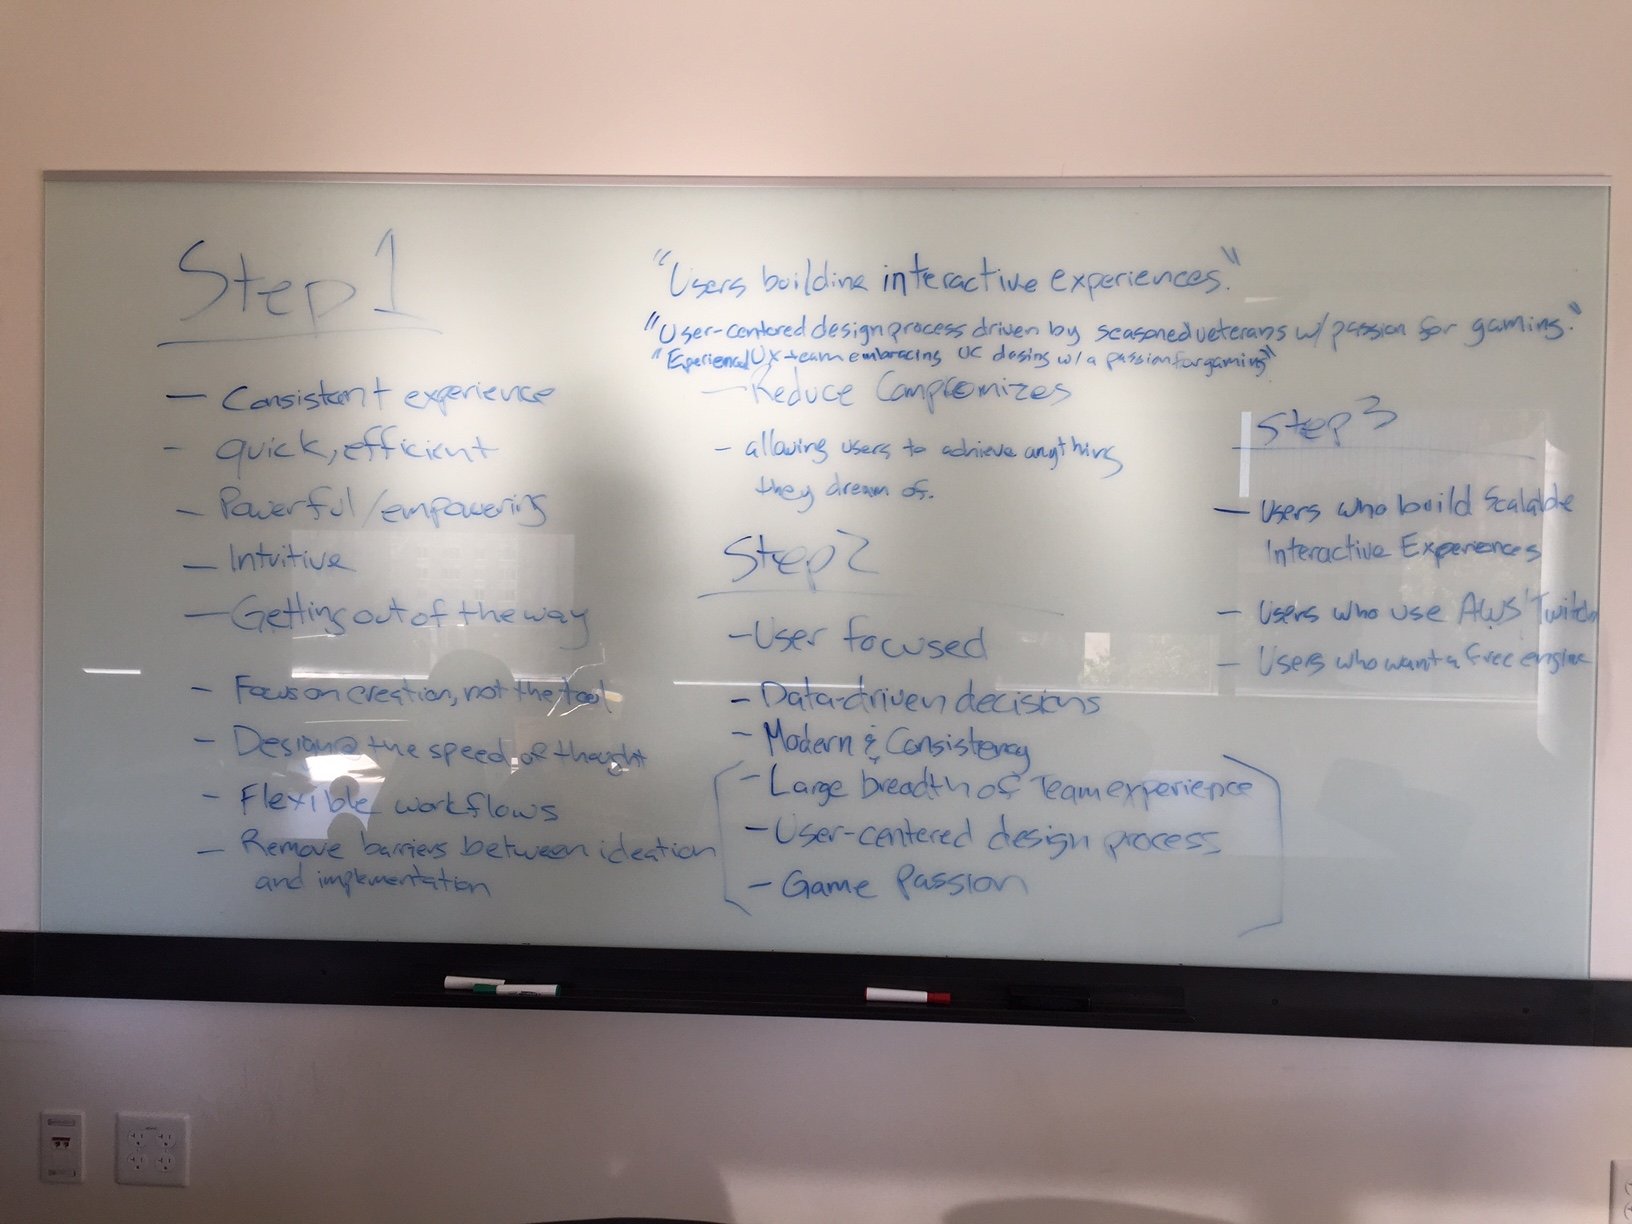 Step 1
— Consistant experience
- quick, efficient
- Powerful/empowering
- Intuitive
- Getting out of the way
- Focus on creation, not the tool
- Design @ the speed of thought
- Flexible workflows
- Remove barriers between ideation
and implementation
"Users building interactive experiences."
"User-centered design process driven by seasoned veterans w/ passion for gaming."
"Experienced UX team embracing UC desing w/ a passion for gaming"
- Reduce Compromizes
- allowing users to achieve anything
they dream of.
Step 2
- User focused
- Data-driven decisions
- Modern & Consistency
- Large breadth of Team experience
- User-centered design process
- Game Passion
Step 3
- Users who build Scalable
Interactive Experiences
- Users who use AWS/Twitch
- Users who want a free engine